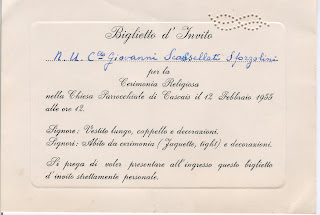 Biglietto d'Invito
N. U. C.te Giovanni Scassellati Sforzolini
per la
Cerimonia Religiosa
nella Chiesa Parrocchiale di Cascais il 12 Febbraio 1955
alle ore 12.
Signore: Vestito lungo, cappello e decorazioni.
Signori: Abito da cerimonia (Jaquette, tight) e decorazioni.
Si prega di voler presentare all'ingresso questo biglietto
d'invito strettamente personale.